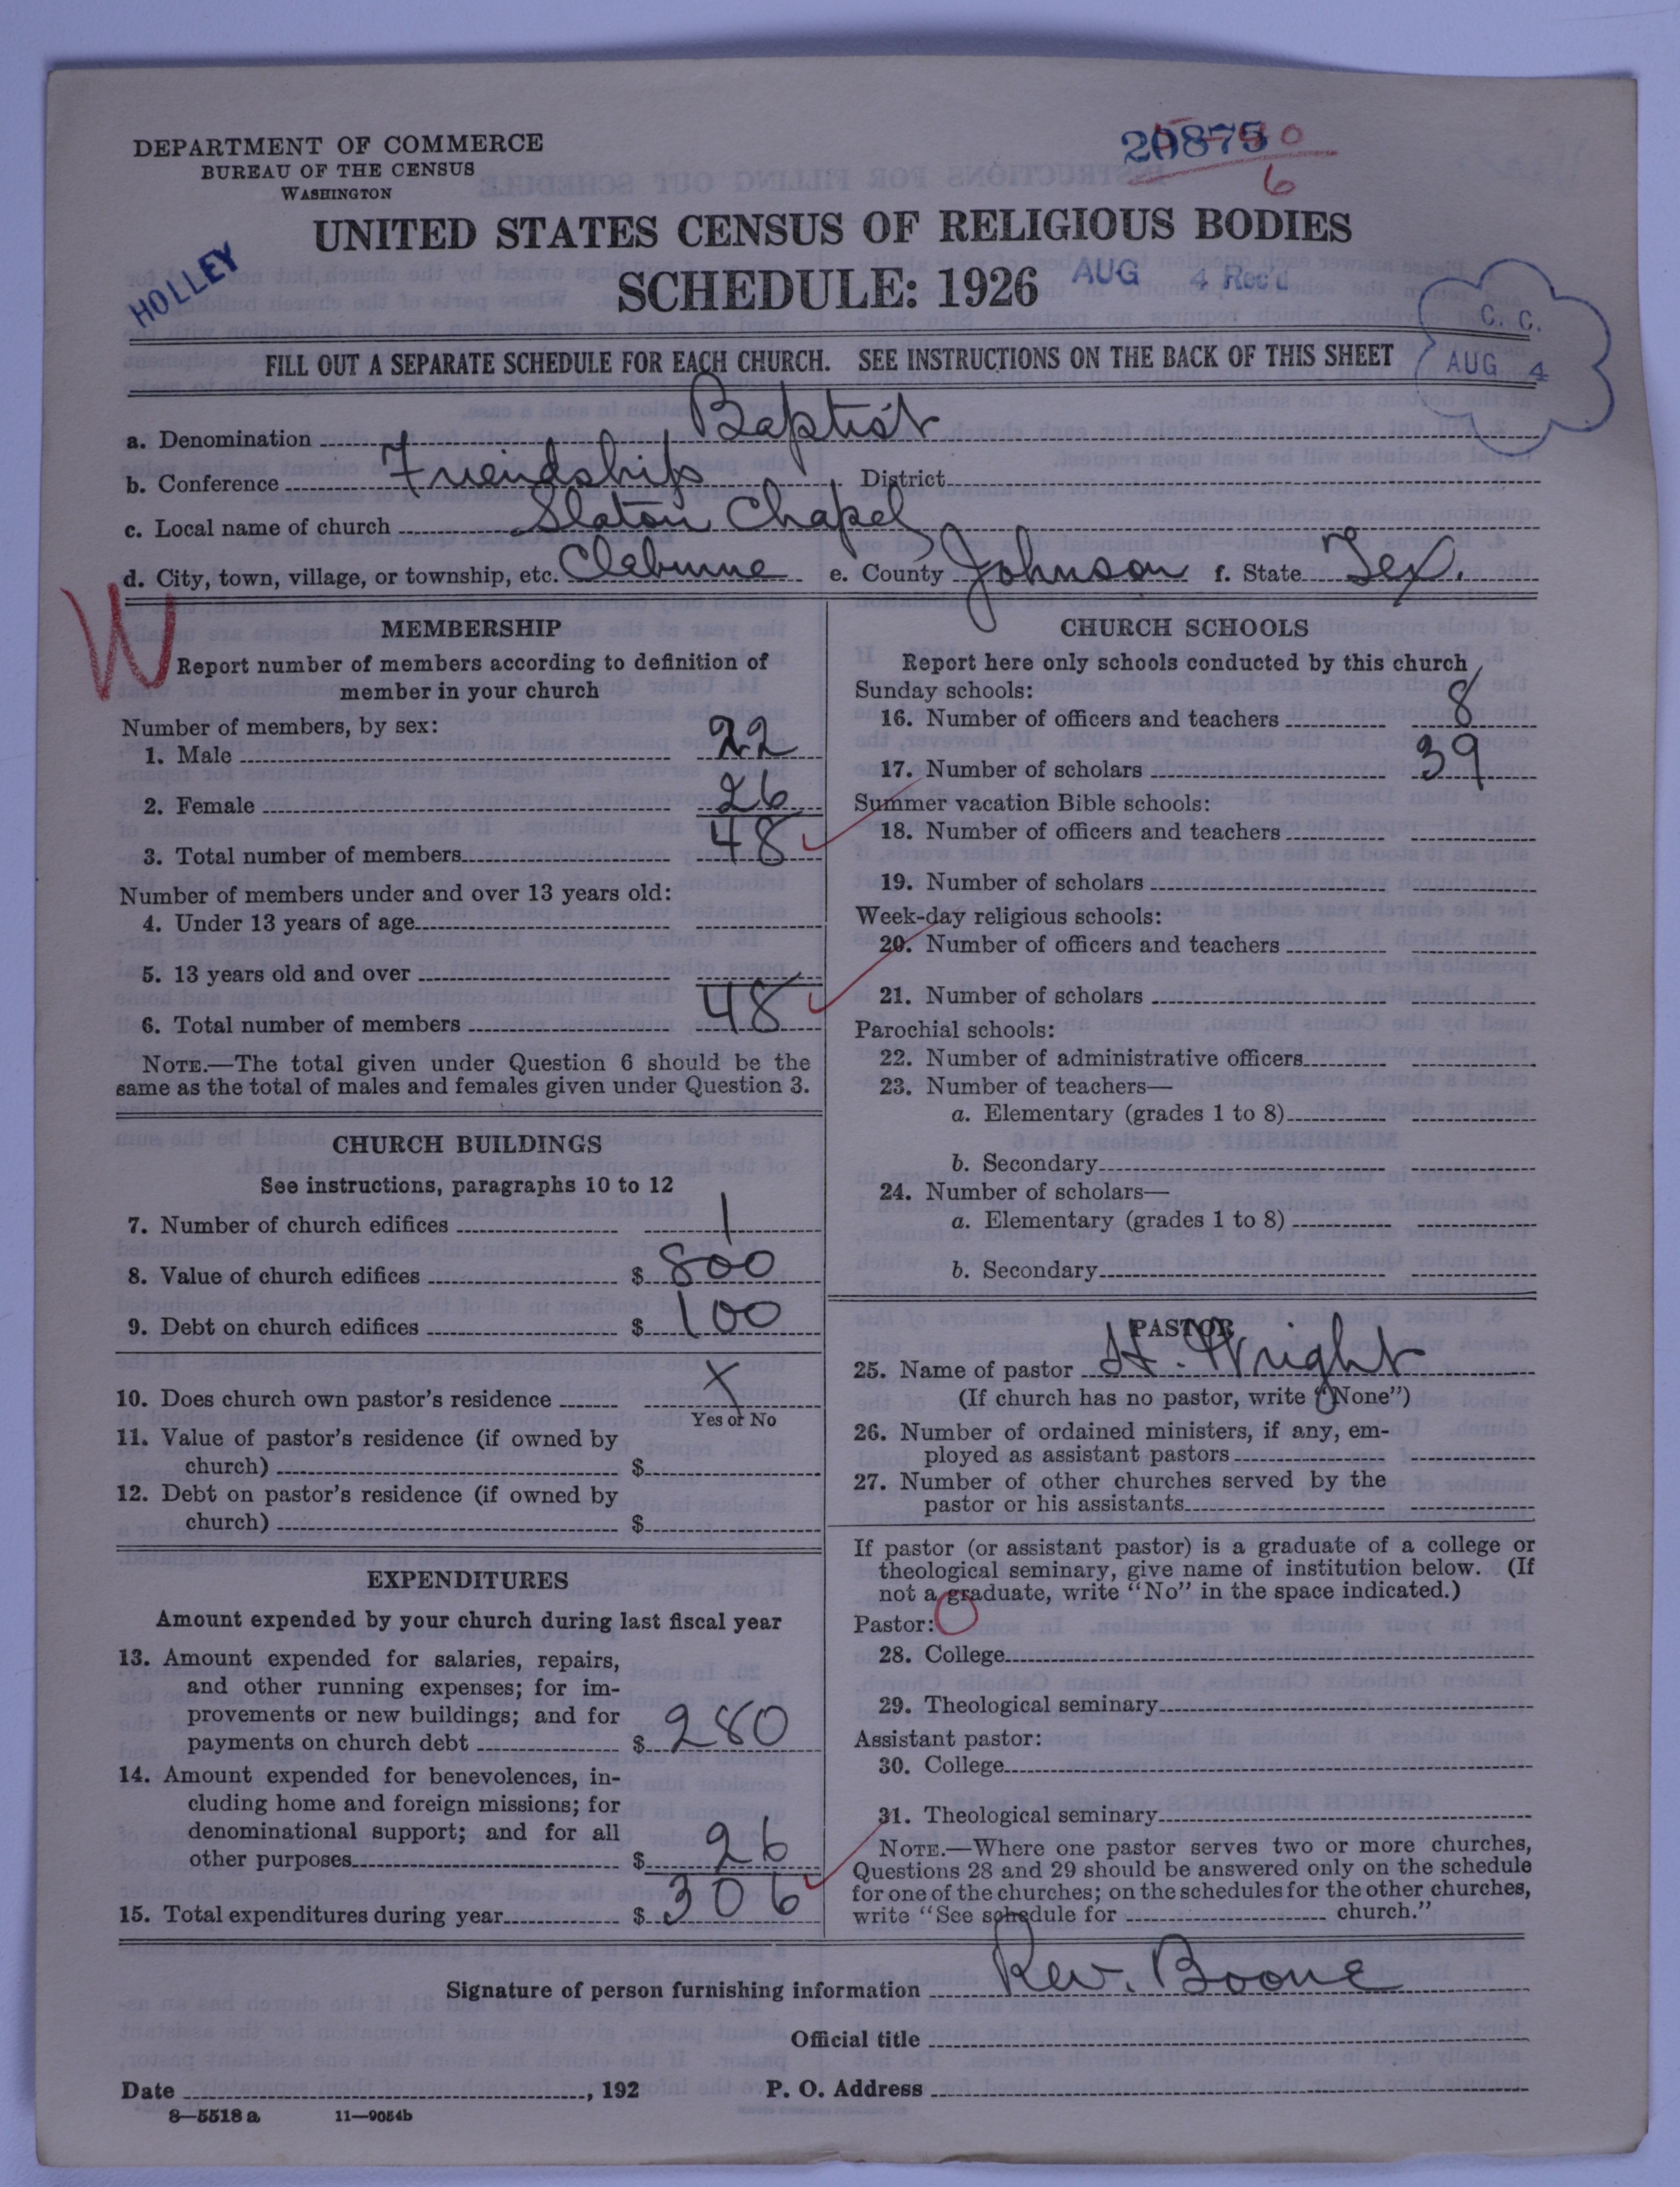 DEPARTMENT OF COMMERCE
BUREAU OF THE CENSUS
WASHINGTON
20875
6
UNITED STATES CENSUS OF RELIGIOUS BODIES
SCHEDULE: 1926
AUG 4 Rec'd
HOLLEY
C. C.
AUG 4
FILL OUT A SEPARATE SCHEDULE FOR EACH CHURCH. SEE INSTRUCTIONS ON THE BACK OF THIS SHEET
a. Denomination Baptist
b. Conference Friendship District
c. Local name of church Slaton Chapel
d. City, town, village, or township, etc. Cleburne e. County Johnson f. State Tex.
W
MEMBERSHIP
Report number of members according to definition of
member in your church
Number of members, by sex:
1. Male 22
2. Female 26
3. Total number of members 48
Number of members under and over 13 years old:
4. Under 13 years of age
5. 13 years old and over
6. Total number of members 48
NOTE.—The total given under Question 6 should be the
same as the total of males and females given under Question 3.
CHURCH BUILDINGS
See instructions, paragraphs 10 to 12
7. Number of church edifices 1
8. Value of church edifices $ 800
9. Debt on church edifices $ 100
10. Does church own pastor's residence X
Yes or No
11. Value of pastor's residence (if owned by
church) $
12. Debt on pastor's residence (if owned by
church) $
EXPENDITURES
Amount expended by your church during last fiscal year
13. Amount expended for salaries, repairs,
and other running expenses; for im-
provements or new buildings; and for
payments on church debt $ 280
14. Amount expended for benevolences, in-
cluding home and foreign missions; for
denominational support; and for all
other purposes $ 26
15. Total expenditures during year $ 306
CHURCH SCHOOLS
Report here only schools conducted by this church
Sunday schools:
16. Number of officers and teachers 8
17. Number of scholars 39
Summer vacation Bible schools:
18. Number of officers and teachers
19. Number of scholars
Week-day religious schools:
20. Number of officers and teachers
21. Number of scholars
Parochial schools:
22. Number of administrative officers
23. Number of teachers—
a. Elementary (grades 1 to 8)
b. Secondary
24. Number of scholars—
a. Elementary (grades 1 to 8)
b. Secondary
PASTOR
25. Name of pastor H. Wright
(If church has no pastor, write "None")
26. Number of ordained ministers, if any, em-
ployed as assistant pastors
27. Number of other churches served by the
pastor or his assistants
If pastor (or assistant pastor) is a graduate of a college or
theological seminary, give name of institution below. (If
not a graduate, write "No" in the space indicated.)
Pastor: O
28. College
29. Theological seminary
Assistant pastor:
30. College
31. Theological seminary
NOTE.—Where one pastor serves two or more churches,
Questions 28 and 29 should be answered only on the schedule
for one of the churches; on the schedules for the other churches,
write "See schedule for church."
Signature of person furnishing information Rev. Boone
Official title
Date , 192 P. O. Address
8—5518 a 11—9054b